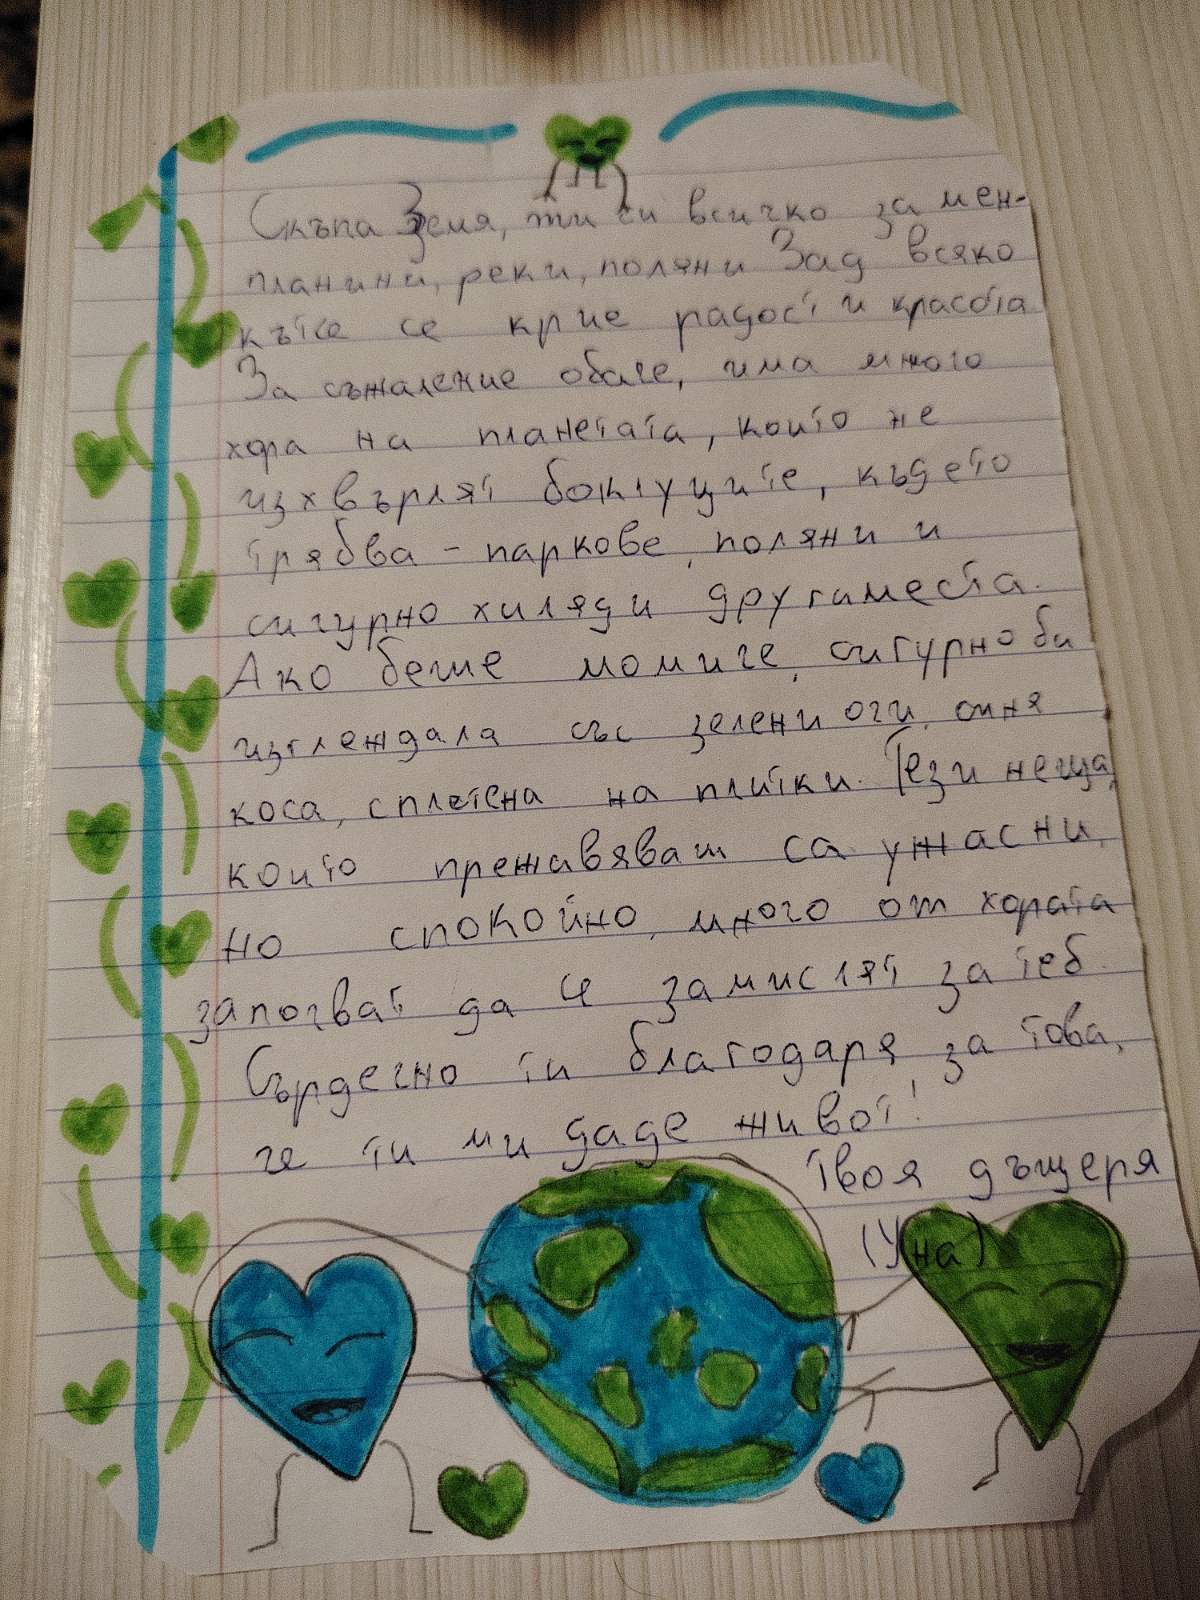 Скъпа Земя, ти си всичко за мен-
планини, реки, поляни Зад всяко
кътче се крие радост и красота
За съжаление обаче, има много
хора на планетата, които не
изхвърлят боклуците, където
трябва - паркове, поляни и
сигурно хиляди други места.
Ако беше момиче, сигурно би
изглеждала със зелени очи, синя
коса, сплетена на плитки. Тези неща,
които преживяваш са ужасни,
но спокойно, много от хората
започват да се замислят за теб.
Сърдечно ти благодаря за това,
че ти ми даде живот!
Твоя дъщеря
(Уна)